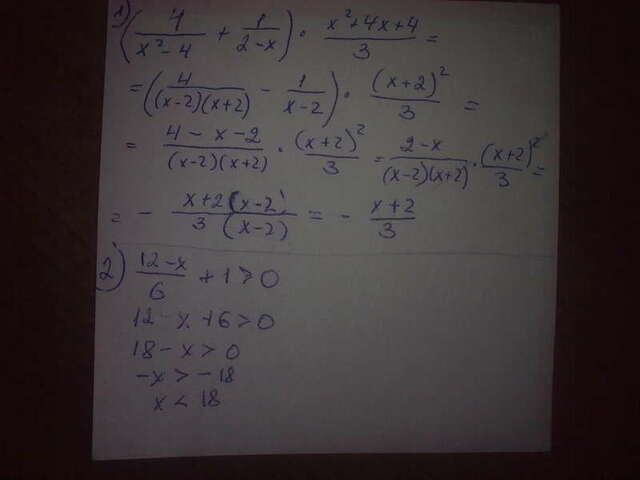 1) (4/(x²-4) + 1/(2-x)) · (x²+4x+4)/3 =
= (4/((x-2)(x+2)) - 1/(x-2)) · (x+2)²/3 =
= (4-x-2)/((x-2)(x+2)) · (x+2)²/3 = (2-x)/((x-2)(x+2)) · (x+2)²/3 =
= - (x+2(x-2))/(3(x-2)) = - (x+2)/3
2) (12-x)/6 + 1 > 0
12 - x + 6 > 0
18 - x > 0
-x > - 18
x < 18